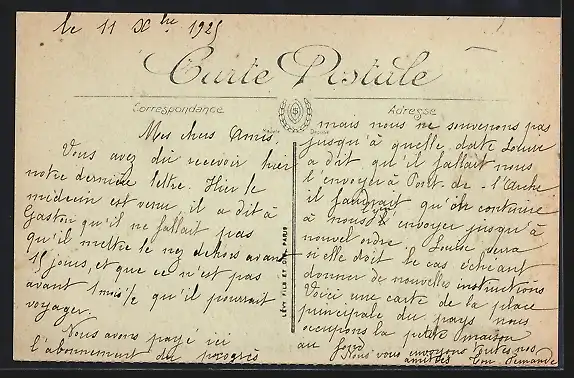 le 11 Xbre 1925
Carte Postale
Correspondance
Adresse
Mes chers Amis,
Vous avez dû recevoir hier
notre dernière lettre. Hier le
médecin est venu, il a dit à
Gaston qu'il ne fallait pas
qu'il mettre le nez dehors avant
15 jours, et que ce n'est pas
avant 1 mois qu'il pourrait
voyager.
Nous avons payé ici
l'abonnement du progrès
LÉVY FILS ET CIE, PARIS
mais nous ne souvenons pas
jusqu'à quelle date Louise
a dit qu'il fallait nous
l'envoyer à Pont-de-l'Arche
il faudrait qu'on continue
à nous l'envoyer jusqu'à
nouvel ordre, Louise verra
si elle doit le cas échéant
donner de nouvelles instructions
Voici une carte de la place
principale du pays nous
occupons la petite maison
au fond
Nous vous envoyons toutes nos
amitiés